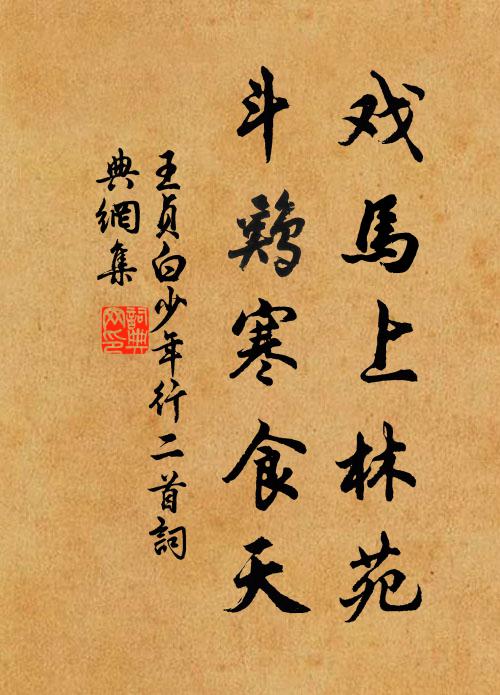 戏馬上林苑
斗鷄寒食天
王貞白少年行二首詞
典網集
詞典網印